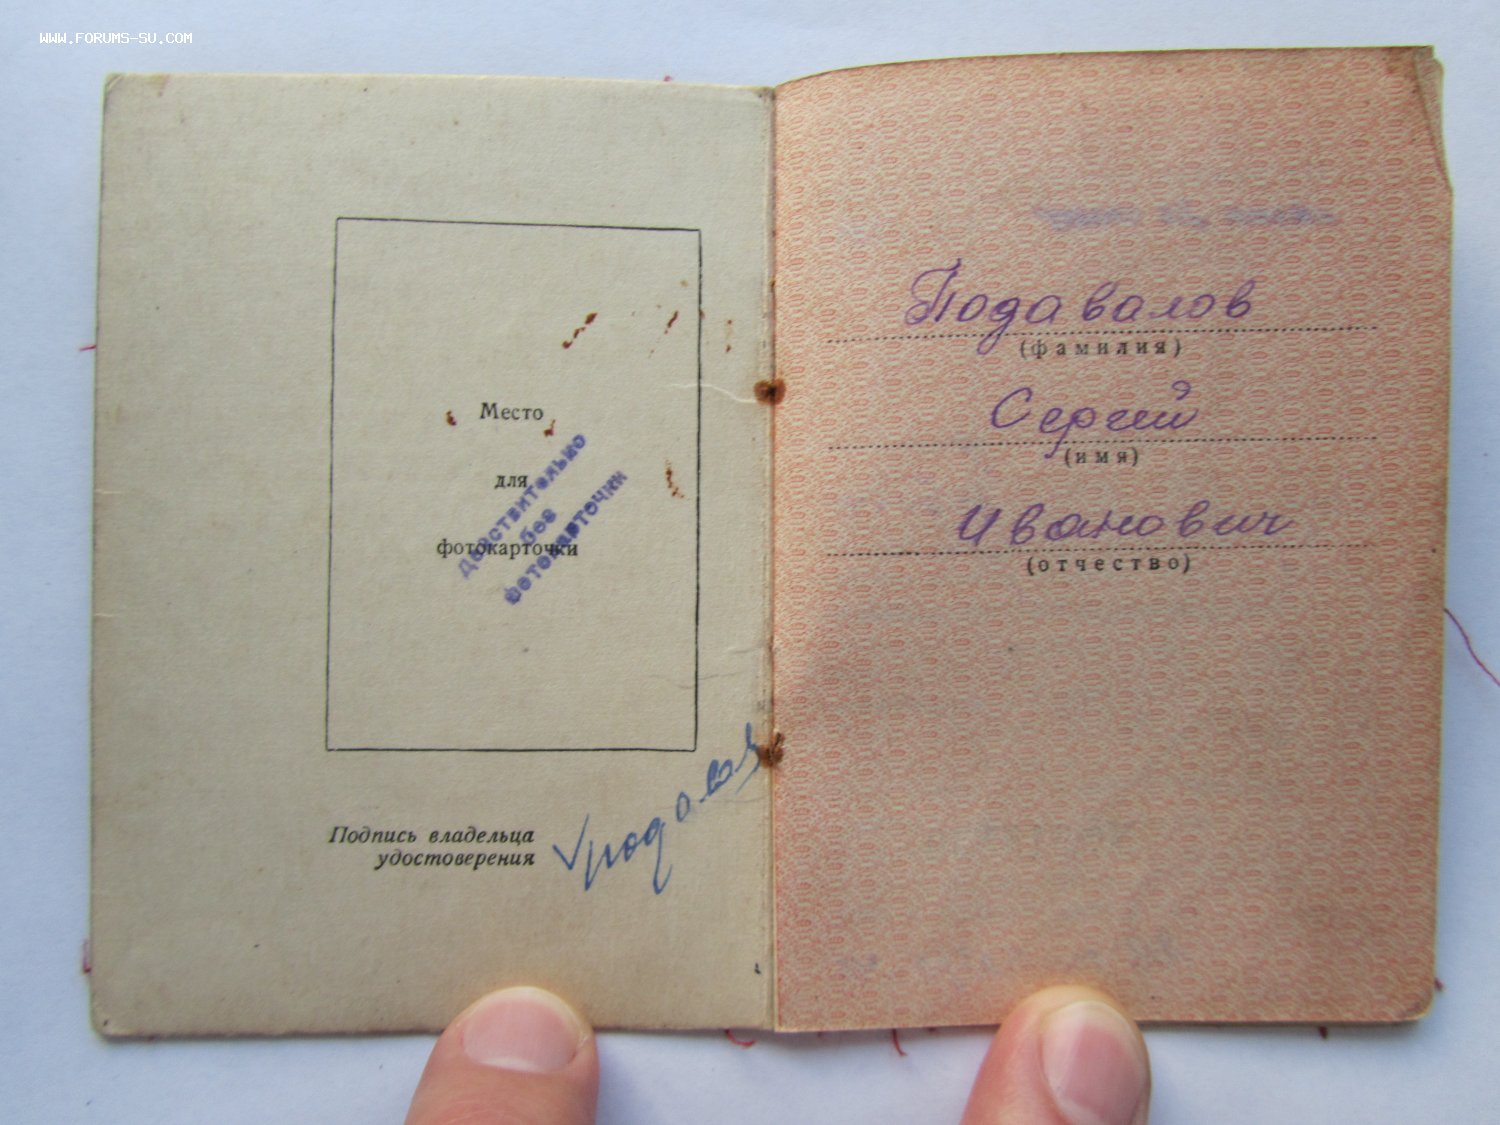 WWW.FORUMS-SU.COM
Место
для
фотокарточки
Действительно
без
фотокарточки
Подпись владельца
удостоверения
Подавалов
(фамилия)
Сергей
(имя)
Иванович
(отчество)